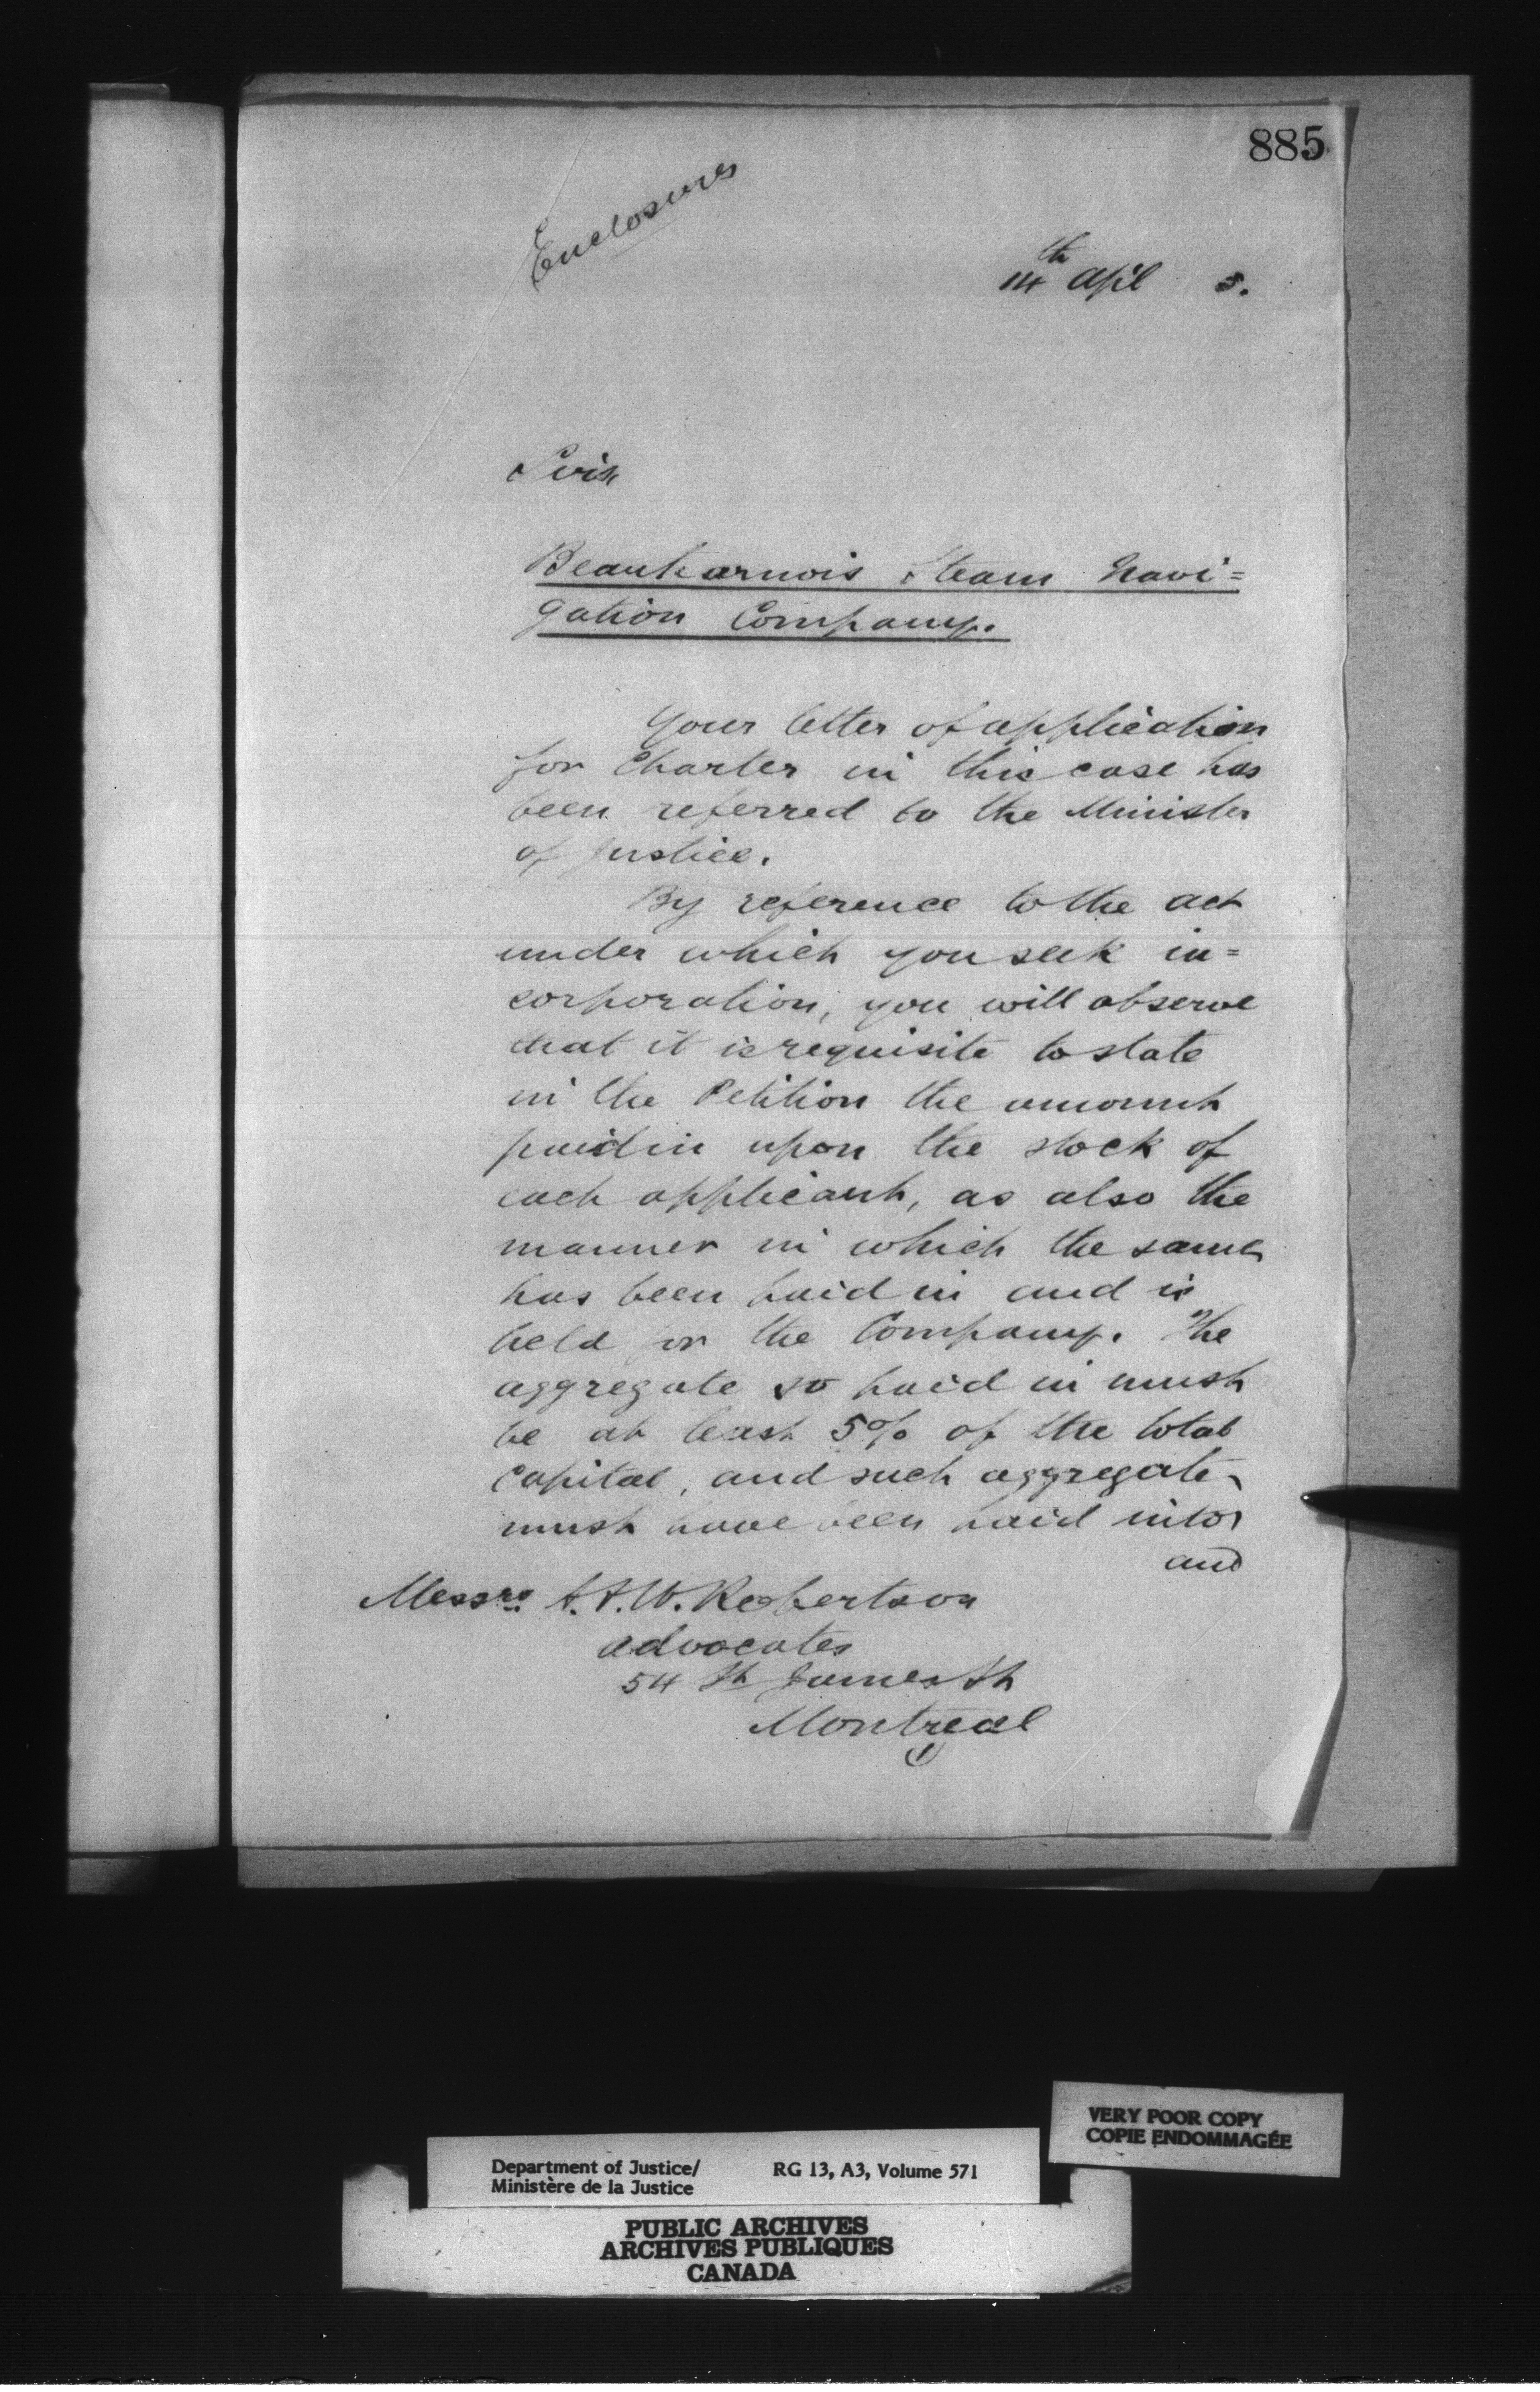 885
Enclosures
14th April 5.
Sirs,
Beauharnois Steam Navi=
gation Company.
Your letter of application
for Charter in this case has
been referred to the Minister
of Justice.
By reference to the act
under which you seek in=
corporation, you will observe
that it is requisite to state
in the Petition the amount
paid in upon the stock of
each applicant, as also the
manner in which the same
has been paid in and is
held for the Company. The
aggregate so paid in must
be at least 5% of the total
Capital, and such aggregate
must have been paid into
and
Messrs. A. & W. Robertson
advocates
54 St James St
Montreal
VERY POOR COPY
COPIE ENDOMMAGÉE
Department of Justice/ RG 13, A3, Volume 571
Ministère de la Justice
PUBLIC ARCHIVES
ARCHIVES PUBLIQUES
CANADA